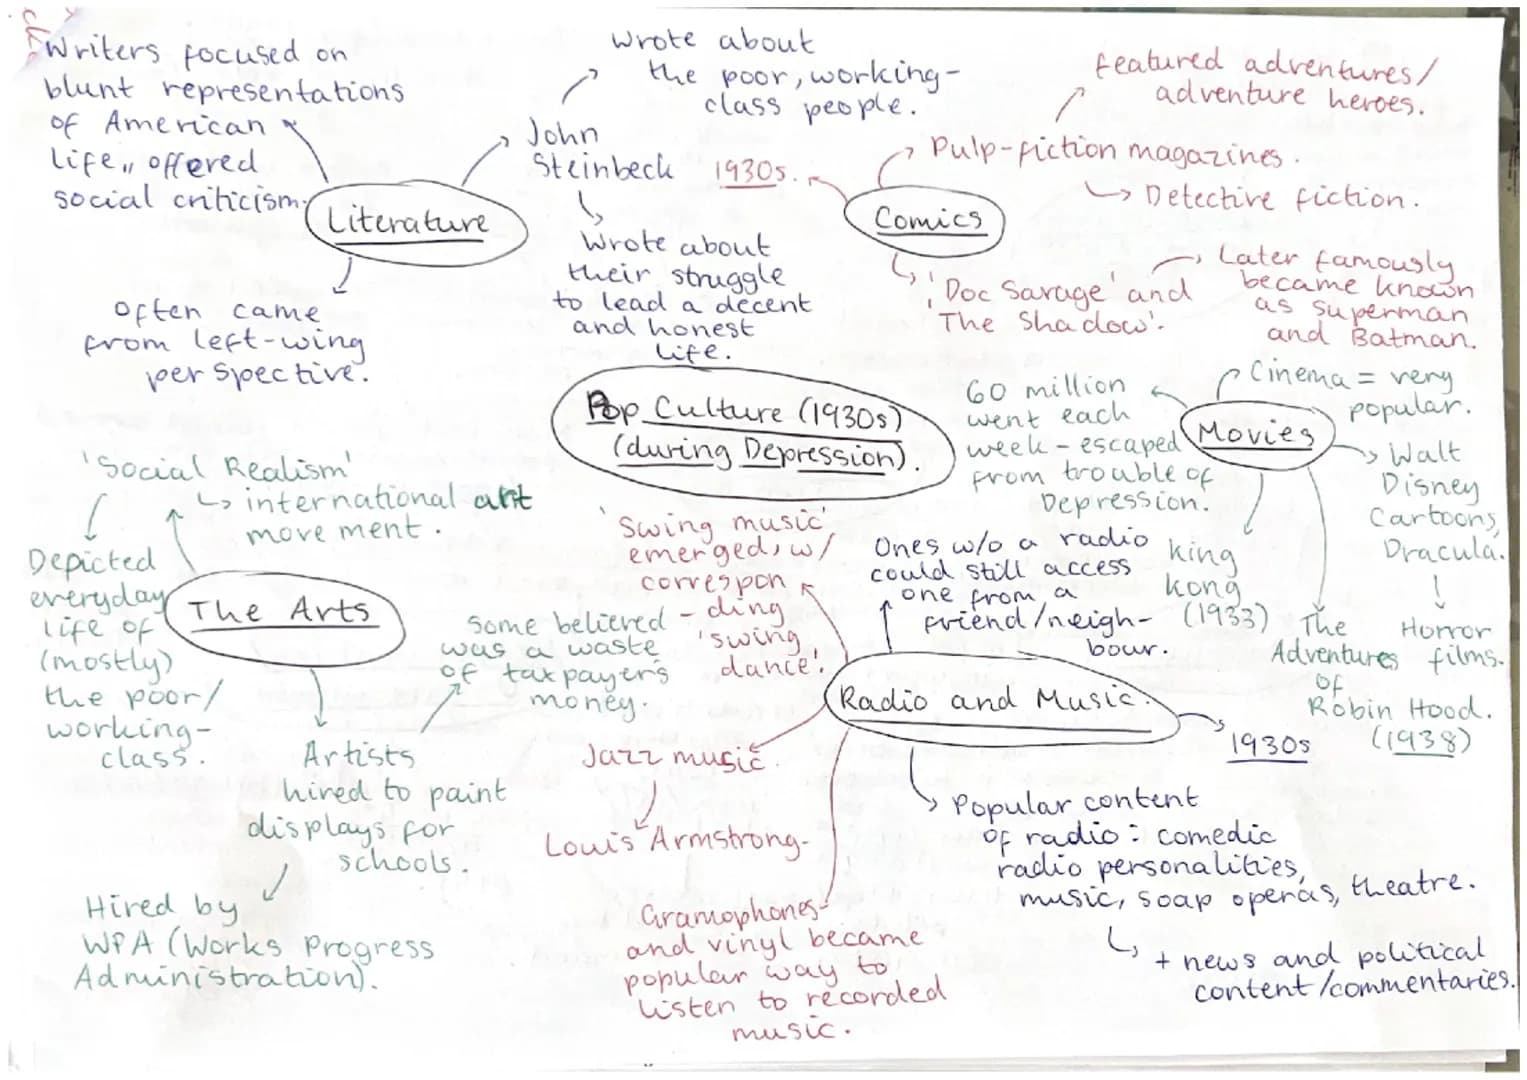 Writers focused on
blunt representations
of American
life,, offered
social criticism.
Literature
often came
from left-wing
perspective.
John
Steinbeck
Wrote about
the poor, working-
class people.
Wrote about
their struggle
to lead a decent
and honest
life.
Comics
1930s.
Pulp-fiction magazines.
featured adventures/
adventure heroes.
Detective fiction.
'Doc Savage' and
'The Shadow'.
Later famously
became known
as Superman
and Batman.
Pop Culture (1930s)
(during Depression).
Movies
Cinema = very
popular.
60 million
went each
week - escaped
from trouble of
Depression.
Walt
Disney
Cartoons,
Dracula.
Horror
films.
King
Kong
(1933)
The
Adventures
of
Robin Hood.
(1938)
The Arts
'Social Realism'
international art
movement.
Depicted
everyday
life of
(mostly)
the poor/
working-
class.
Artists
hired to paint
displays for
schools.
Some believed
was a waste
of taxpayer's
money.
Hired by
WPA (Works Progress
Administration).
Radio and Music
'Swing music'
emerged, w/
correspon
-ding
'swing
dance'.
Ones w/o a radio
could still access
one from a
friend/neigh-
bour.
1930s
Jazz music.
Louis Armstrong.
Gramophones
and vinyl became
popular way to
listen to recorded
music.
Popular content
of radio: comedic
radio personalities,
music, soap operas, theatre.
+ news and political
content/commentaries.